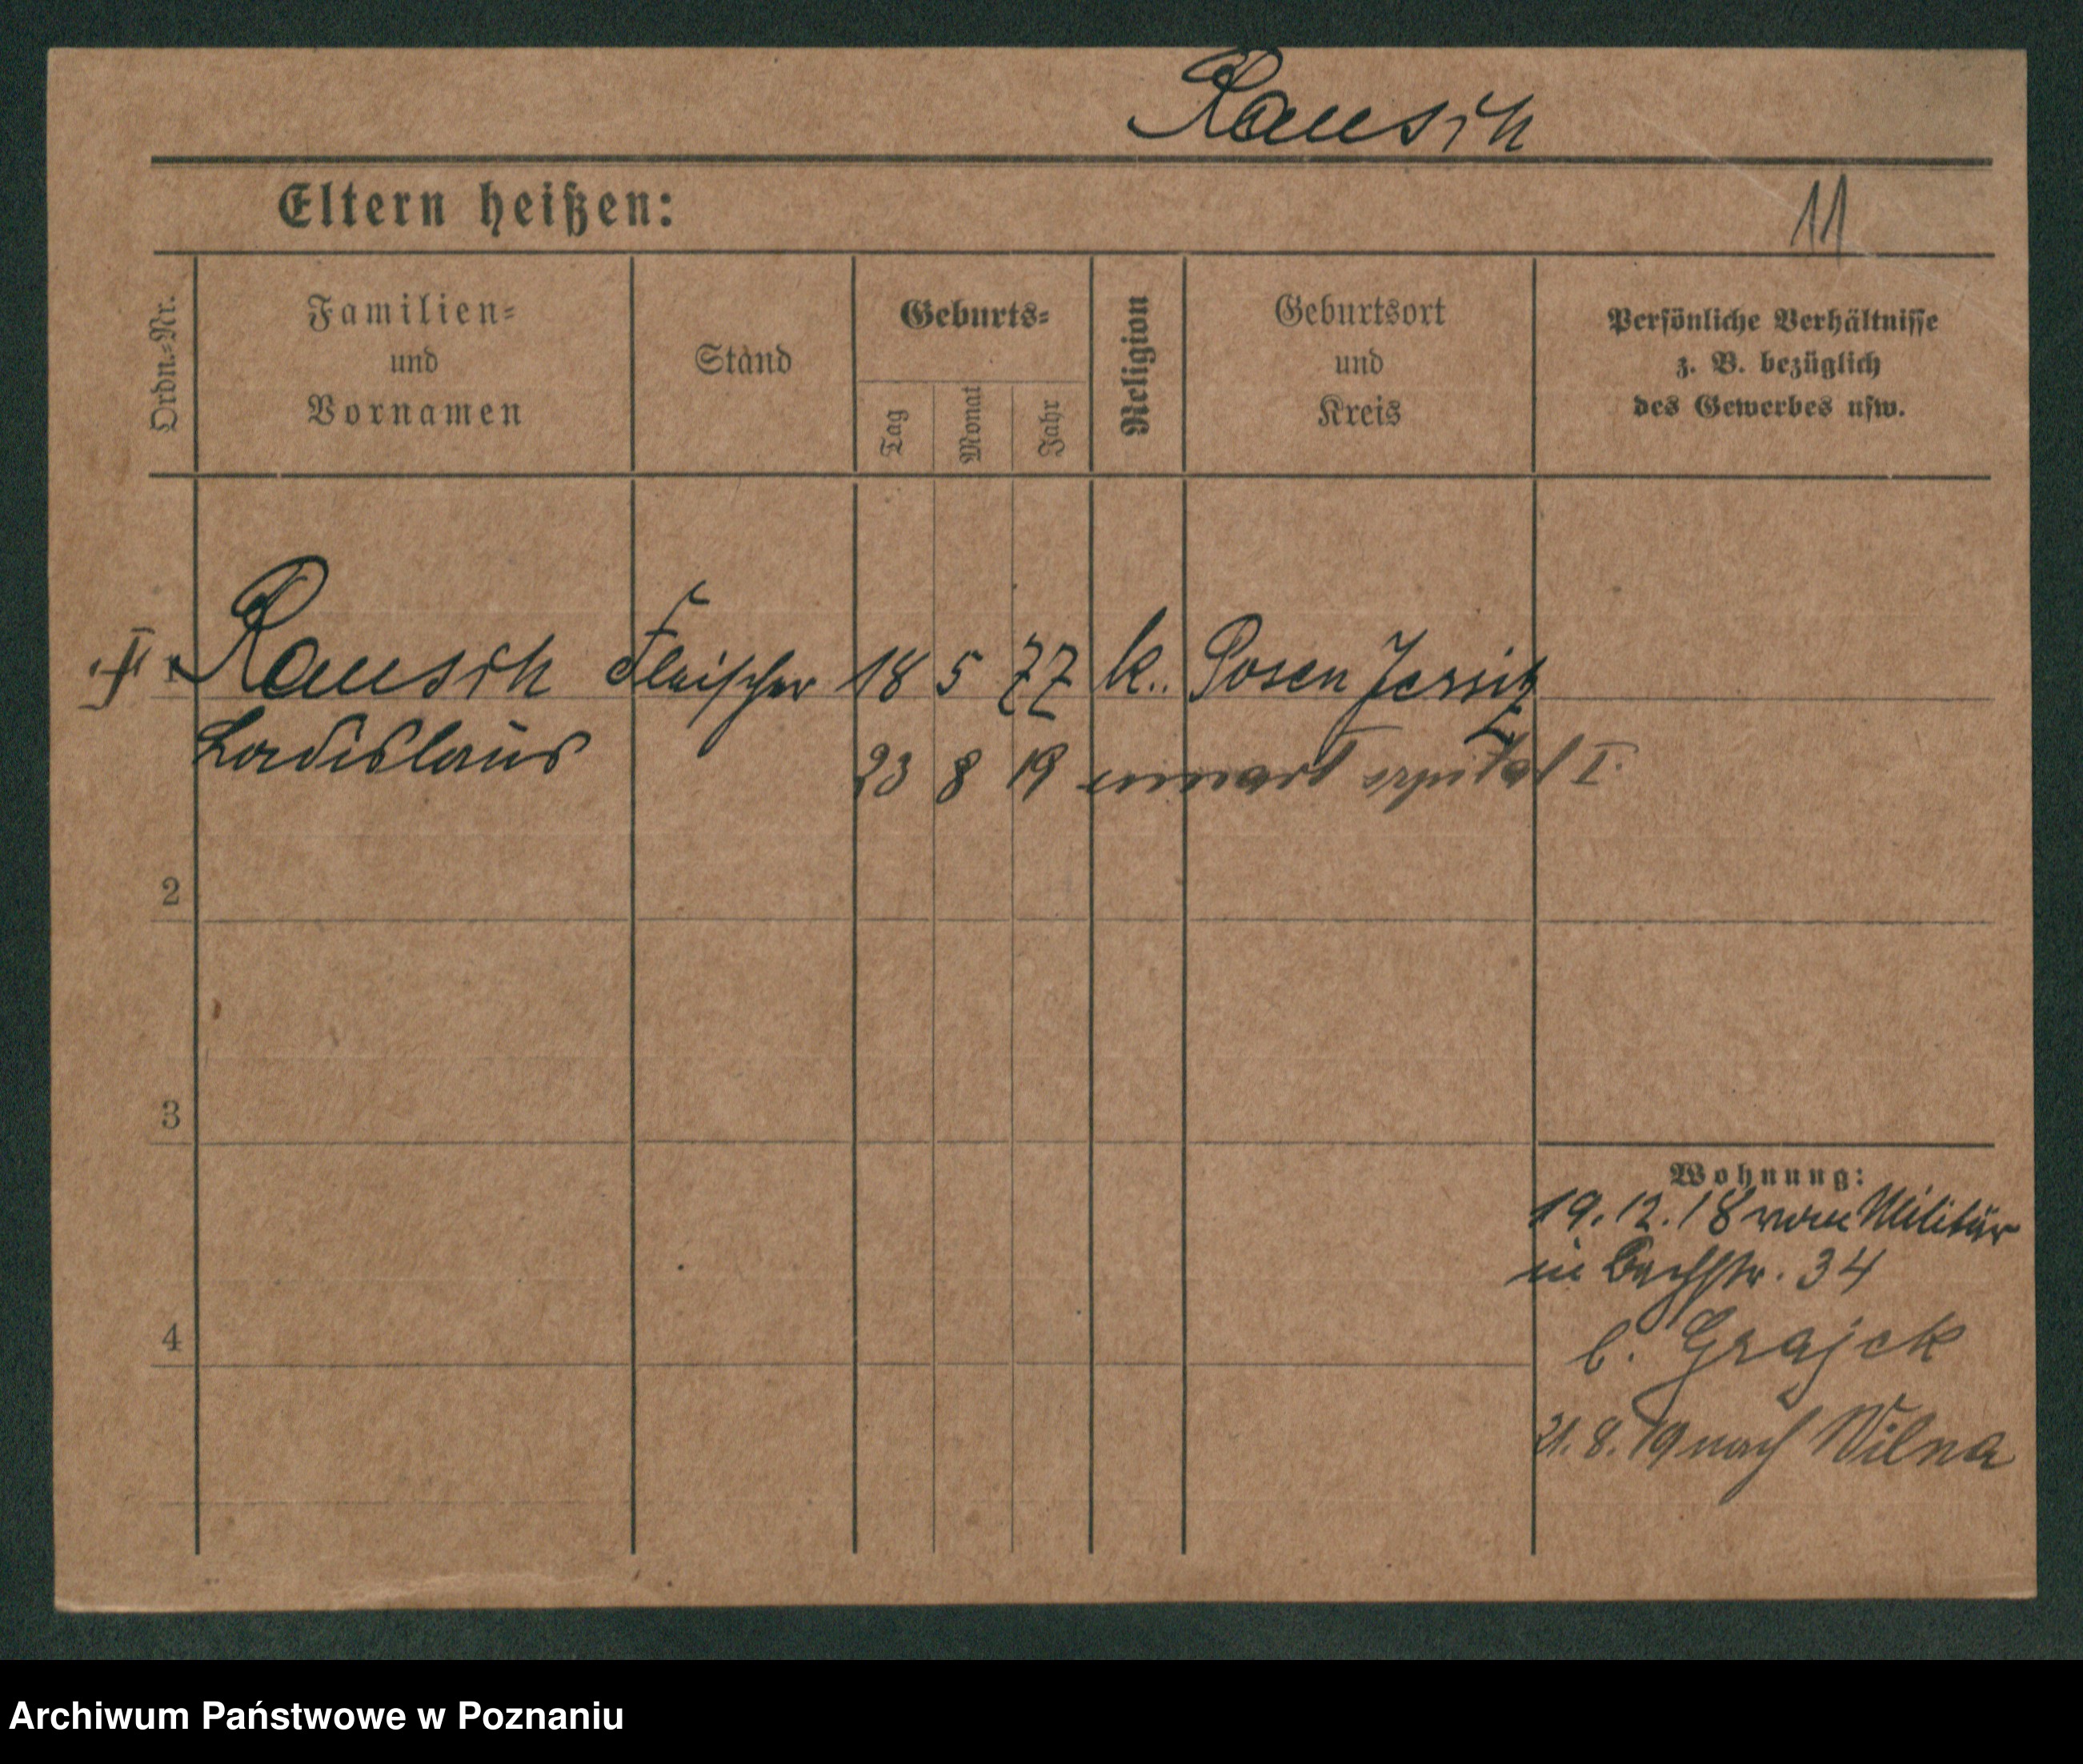 Rausch
Eltern heißen:
11
Ordn.-Nr.
Familien-
und
Vornamen
Stand
Geburts-
Tag
Monat
Jahr
Religion
Geburtsort
und
Kreis
Persönliche Verhältnisse
z. B. bezüglich
des Gewerbes usw.
Rausch Fleischer 18 5 77 k. Posen Jersitz
Ladislaus
23 8 19 umarł szpital I.
2
3
4
Wohnung:
19.12.18 vom Militär
in Bachstr. 34
b. Grajek
21.8.19 nach Wilna
Archiwum Państwowe w Poznaniu